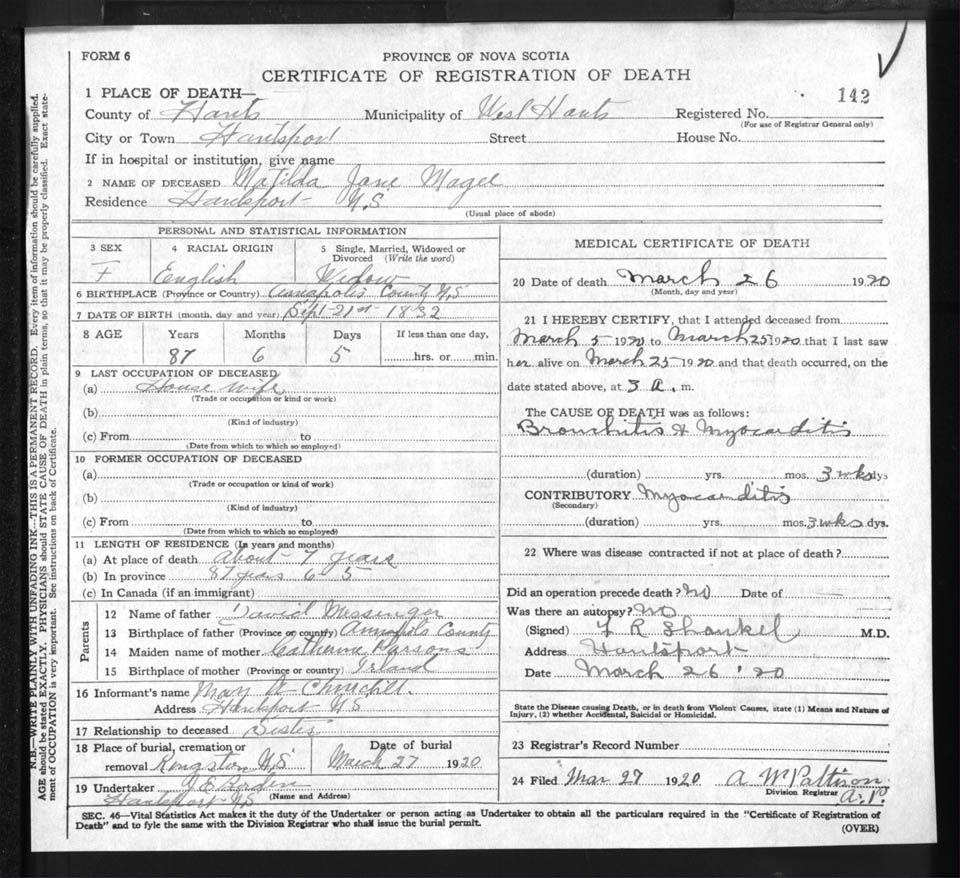 FORM 6
PROVINCE OF NOVA SCOTIA
CERTIFICATE OF REGISTRATION OF DEATH
142
1 PLACE OF DEATH—
County of Hants Municipality of West Hants Registered No.
(For use of Registrar General only)
City or Town Hantsport Street House No.
If in hospital or institution, give name
2 NAME OF DECEASED Matilda Jane Magee
Residence Hantsport N.S
(Usual place of abode)
PERSONAL AND STATISTICAL INFORMATION
3 SEX 4 RACIAL ORIGIN 5 Single, Married, Widowed or Divorced (Write the word)
F English Widow
6 BIRTHPLACE (Province or Country) Annapolis County N.S
7 DATE OF BIRTH (month, day and year) Sept 21st 1832
8 AGE Years Months Days If less than one day,
87 6 5 hrs. or min.
9 LAST OCCUPATION OF DECEASED
(a) House wife
(Trade or occupation or kind or work)
(b)
(Kind of industry)
(c) From to
(Date from which to which so employed)
10 FORMER OCCUPATION OF DECEASED
(a)
(Trade or occupation or kind of work)
(b)
(Kind of industry)
(c) From to
(Date from which to which so employed)
11 LENGTH OF RESIDENCE (In years and months)
(a) At place of death about 7 years
(b) In province 87 years 6 - 5
(c) In Canada (if an immigrant)
Parents
12 Name of father David Messenger
13 Birthplace of father (Province or country) Annapolis County
14 Maiden name of mother Catherine Parsons
15 Birthplace of mother (Province or country) Irland
16 Informant's name May A Churchill
Address Hantsport NS
17 Relationship to deceased Sister
18 Place of burial, cremation or removal Kingston N.S Date of burial March 27 1920
19 Undertaker
Hantsport NS (Name and Address)
MEDICAL CERTIFICATE OF DEATH
20 Date of death March 26 1920
(Month, day and year)
21 I HEREBY CERTIFY, that I attended deceased from
March 5 1920 to March 25 1920 that I last saw
her alive on March 25 1920 and that death occurred, on the
date stated above, at 3 a. m.
The CAUSE OF DEATH was as follows:
Bronchitis & Myocarditis
(duration) yrs. mos. 3 wks dys
CONTRIBUTORY Myocarditis
(Secondary)
(duration) yrs. mos. 3 wks dys.
22 Where was disease contracted if not at place of death?
Did an operation precede death? No Date of
Was there an autopsy? No
(Signed) F R Shankel M.D.
Address Hantsport
Date March 26 '20
State the Disease causing Death, or in death from Violent Causes, state (1) Means and Nature of
Injury, (2) whether Accidental, Suicidal or Homicidal.
23 Registrar's Record Number
24 Filed Mar 27 1920 A. W Pattison
Division Registrar
SEC. 46—Vital Statistics Act makes it the duty of the Undertaker or person acting as Undertaker to obtain all the particulars required in the "Certificate of Registration of
Death" and to fyle the same with the Division Registrar who shall issue the burial permit. (OVER)
N.B.—WRITE PLAINLY WITH UNFADING INK—THIS IS A PERMANENT RECORD. Every item of information should be carefully supplied.
AGE should be stated EXACTLY. PHYSICIANS should STATE CAUSE OF DEATH in plain terms, so that it may be properly classified. Exact state-
ment of OCCUPATION is very important. See instructions on back of Certificate.